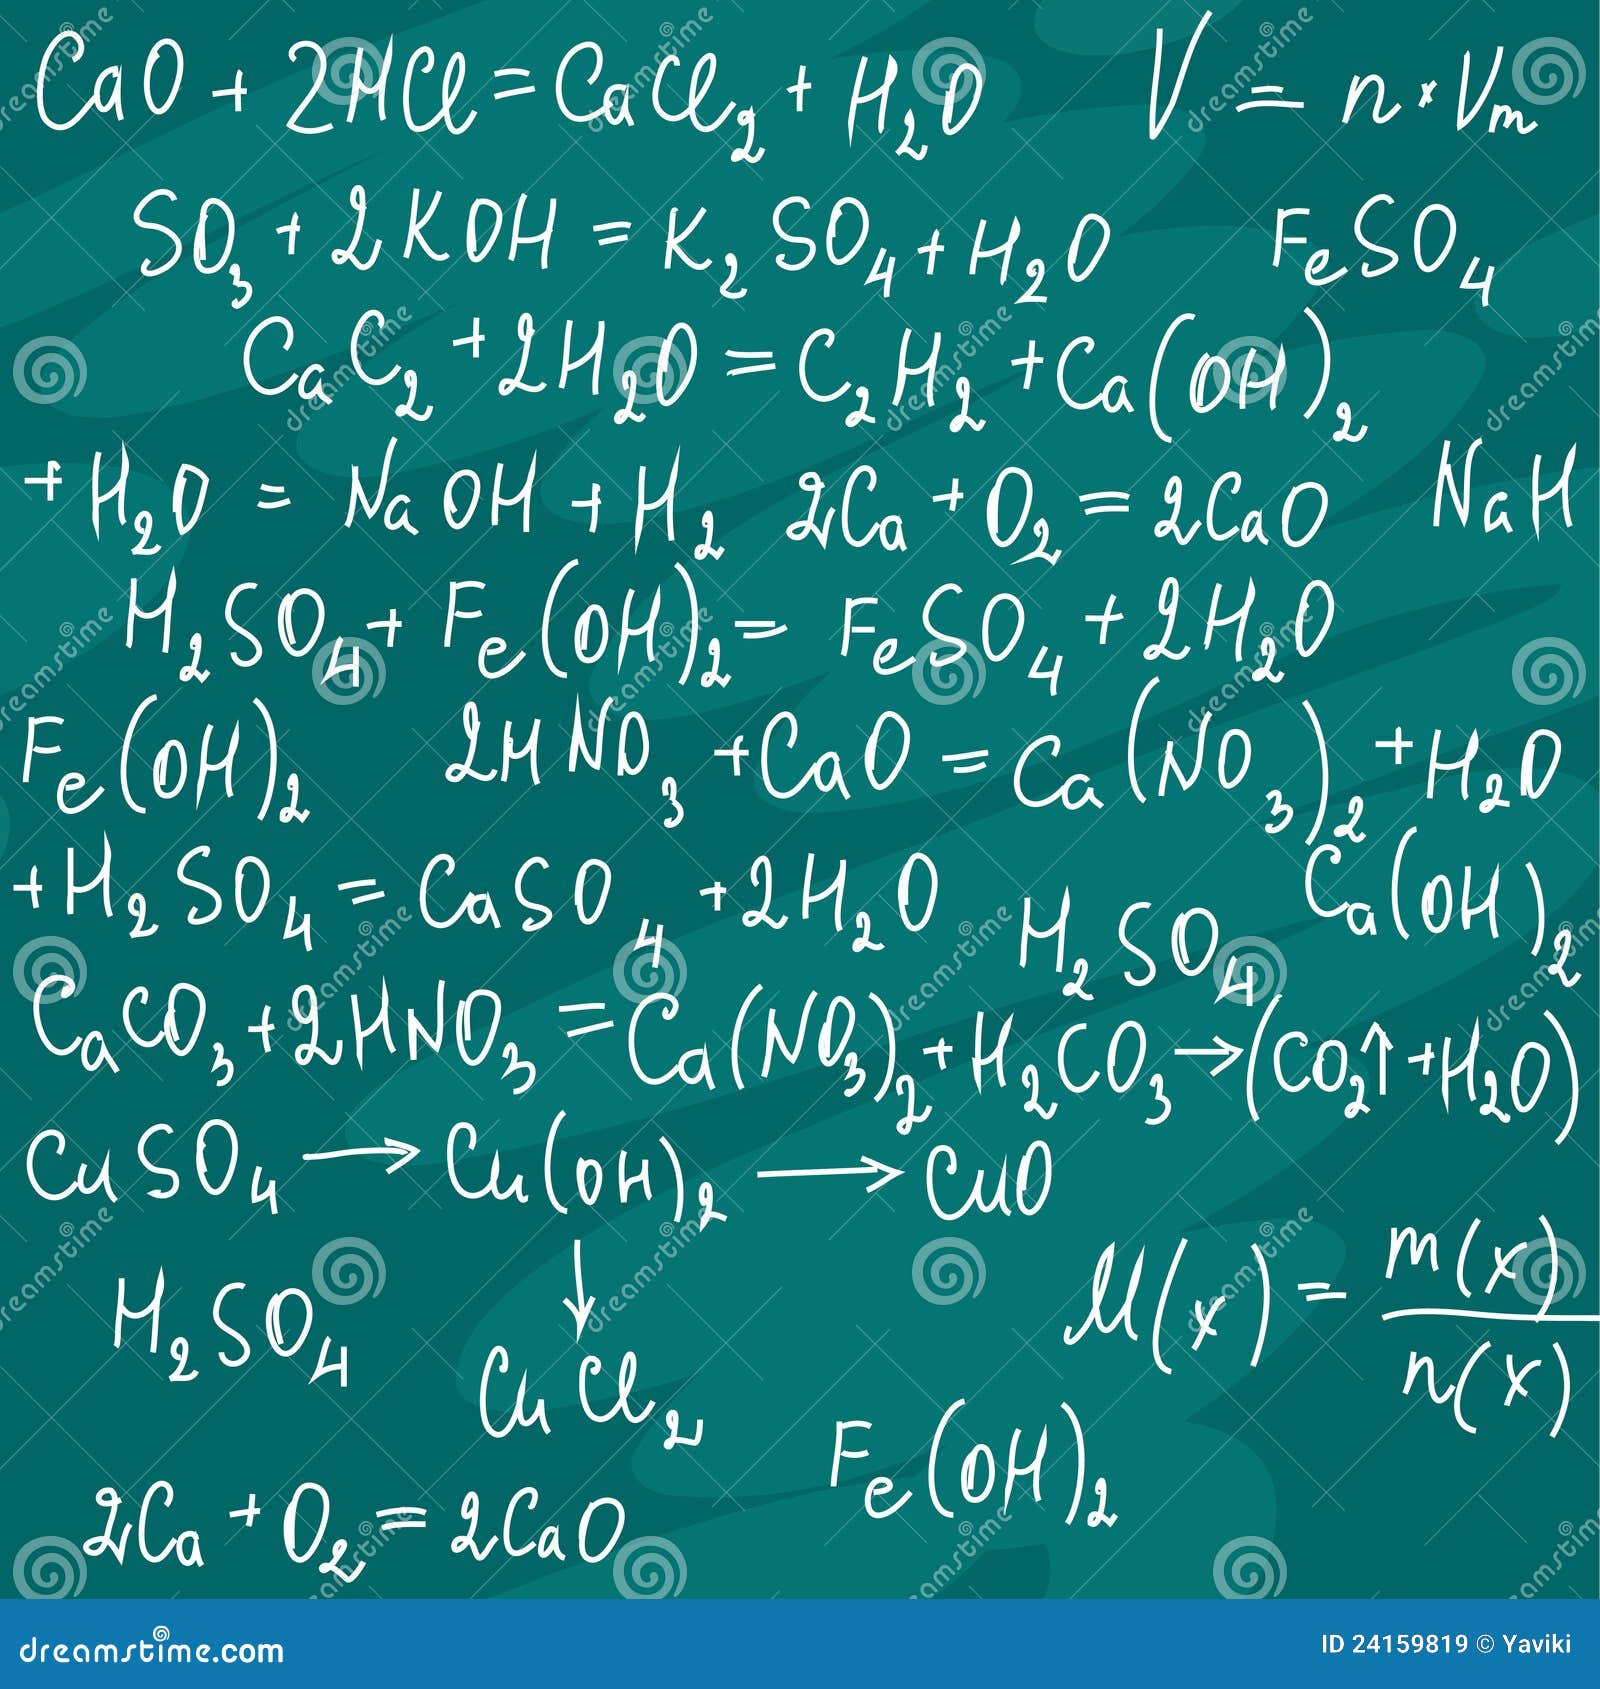 CaO + 2HCl = CaCl₂ + H₂O V = n · Vm
SO₃ + 2KOH = K₂SO₄ + H₂O FeSO₄
CaC₂ + 2H₂O = C₂H₂ + Ca(OH)₂
+ H₂O = NaOH + H₂ 2Ca + O₂ = 2CaO NaH
H₂SO₄ + Fe(OH)₂ = FeSO₄ + 2H₂O
Fe(OH)₂ 2HNO₃ + CaO = Ca(NO₃)₂ + H₂O
+ H₂SO₄ = CaSO₄ + 2H₂O H₂SO₄ Ca(OH)₂
CaCO₃ + 2HNO₃ = Ca(NO₃)₂ + H₂CO₃ → (CO₂↑ + H₂O)
CuSO₄ → Cu(OH)₂ → CuO
↓
H₂SO₄ CuCl₂ M(x) = m(x)/n(x)
Fe(OH)₂
2Ca + O₂ = 2CaO
dreamstime.com ID 24159819 © Yaviki